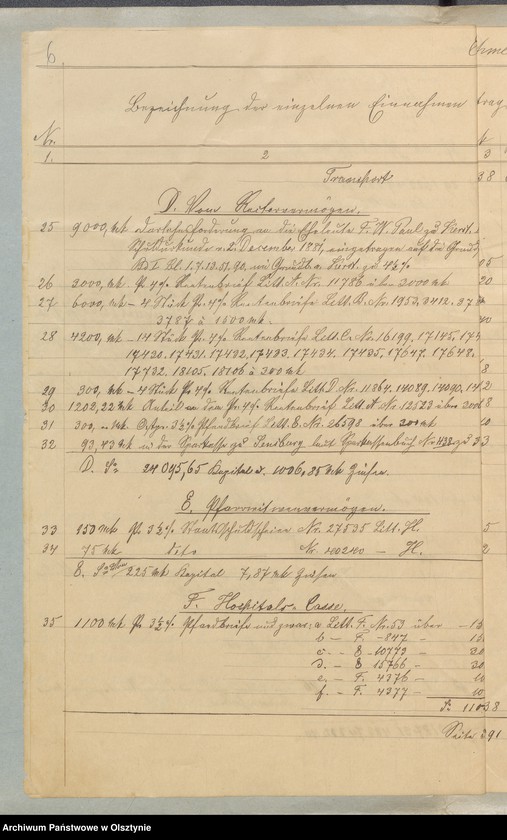 6.
Bezeichnung der einzelnen Einnahmen
Nr.
1. 2 3
Transport 38
D. Vom Restervermögen.
25 9000, mk Darlehnsforderung an die Eheleute F. W. Paul zu
Schuldurkunde v. 2. Dezember 1881, eingetragen auf die
4½% 05
26 3000 mk Pr. 4% Rentenbrief Litt. A. Nr. 11786 über 3000 mk 20
27 6000 mk – 4 Stück Pr. 4% Rentenbriefe Litt. B. Nr. 1953, 3412, 37
3787 à 1500 mk. 40
28 4200 mk – 14 Stück Pr. 4% Rentenbriefe Litt. C. Nr. 16199, 17145, 17
17430, 17431, 17432, 17433, 17434, 17435, 17647, 17648,
17732, 18105, 18106 à 300 mk 8
29 300, mk – 4 Stück Pr. 4% Rentenbriefe Litt. D. Nr. 11864, 14089, 14090, 14 2
30 1202,22 mk Anteil an dem Pr. 4% Rentenbrief Litt. A Nr. 12523 über 8
31 300, – mk. 3½% Pfandbrief Litt. E. Nr. 26598 über 300 mk 10
32 93,43 mk in der Sparkasse zu Sensburg laut Sparkassenbuch Nr. 438 zu 3 3
D. Sa 24095,65 Kapital u. 1006,85 mk Zinsen.
E. Pfarrwitwenvermögen.
33 150 mk Pr. 3½% Staatsschuldschein Nr. 27535 Litt. H. 5
34 75 mk dito Nr. 40240 – H. 2
E. Summa 225 mk Kapital 7,87 mk Zinsen
F. Hospitals-Casse.
35 1100 mk Pr 3½% Pfandbriefe und zwar: a Litt. F. Nr. 53 über – 15
b – F. – 847 – 15
c. – E – 10773 – 30
d. – E 15766 – 30
e. – F. 4376 – 10
f. – F. 4377 – 10
S. 1100 38
Seite 391
Archiwum Państwowe w Olsztynie